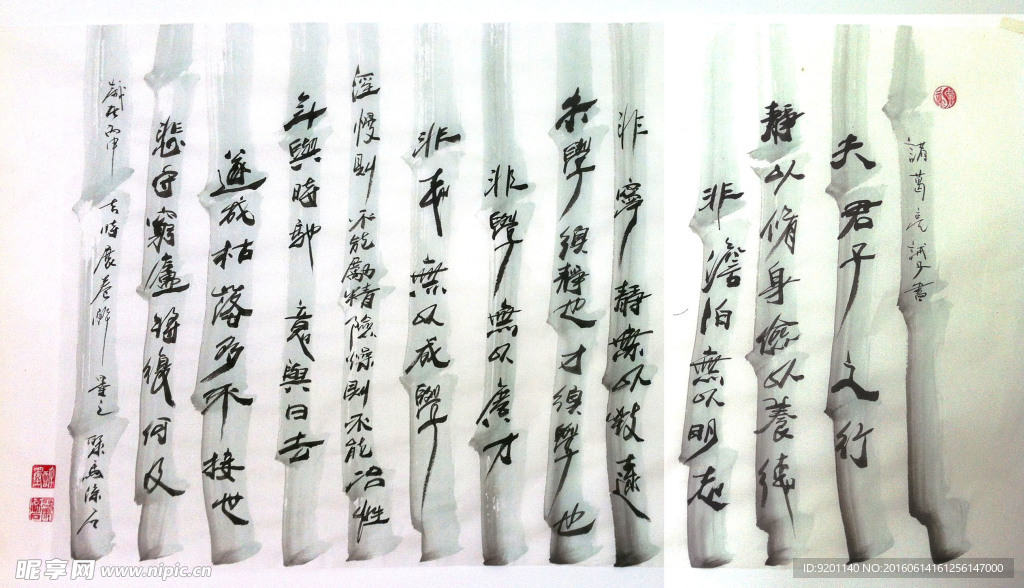 諸葛亮誡子書
夫君子之行
靜以脩身儉以養德
非澹泊無以明志
非寧靜無以致遠
夫學須靜也才須學也
非學無以廣才
非志無以成學
淫慢則不能勵精險燥則不能冶性
年與時馳 意與日去
遂成枯落多不接世
悲守窮廬將復何及
歲在丙申
昵享网 www.nipic.cn
ID:9201140 NO:20160614161256147000